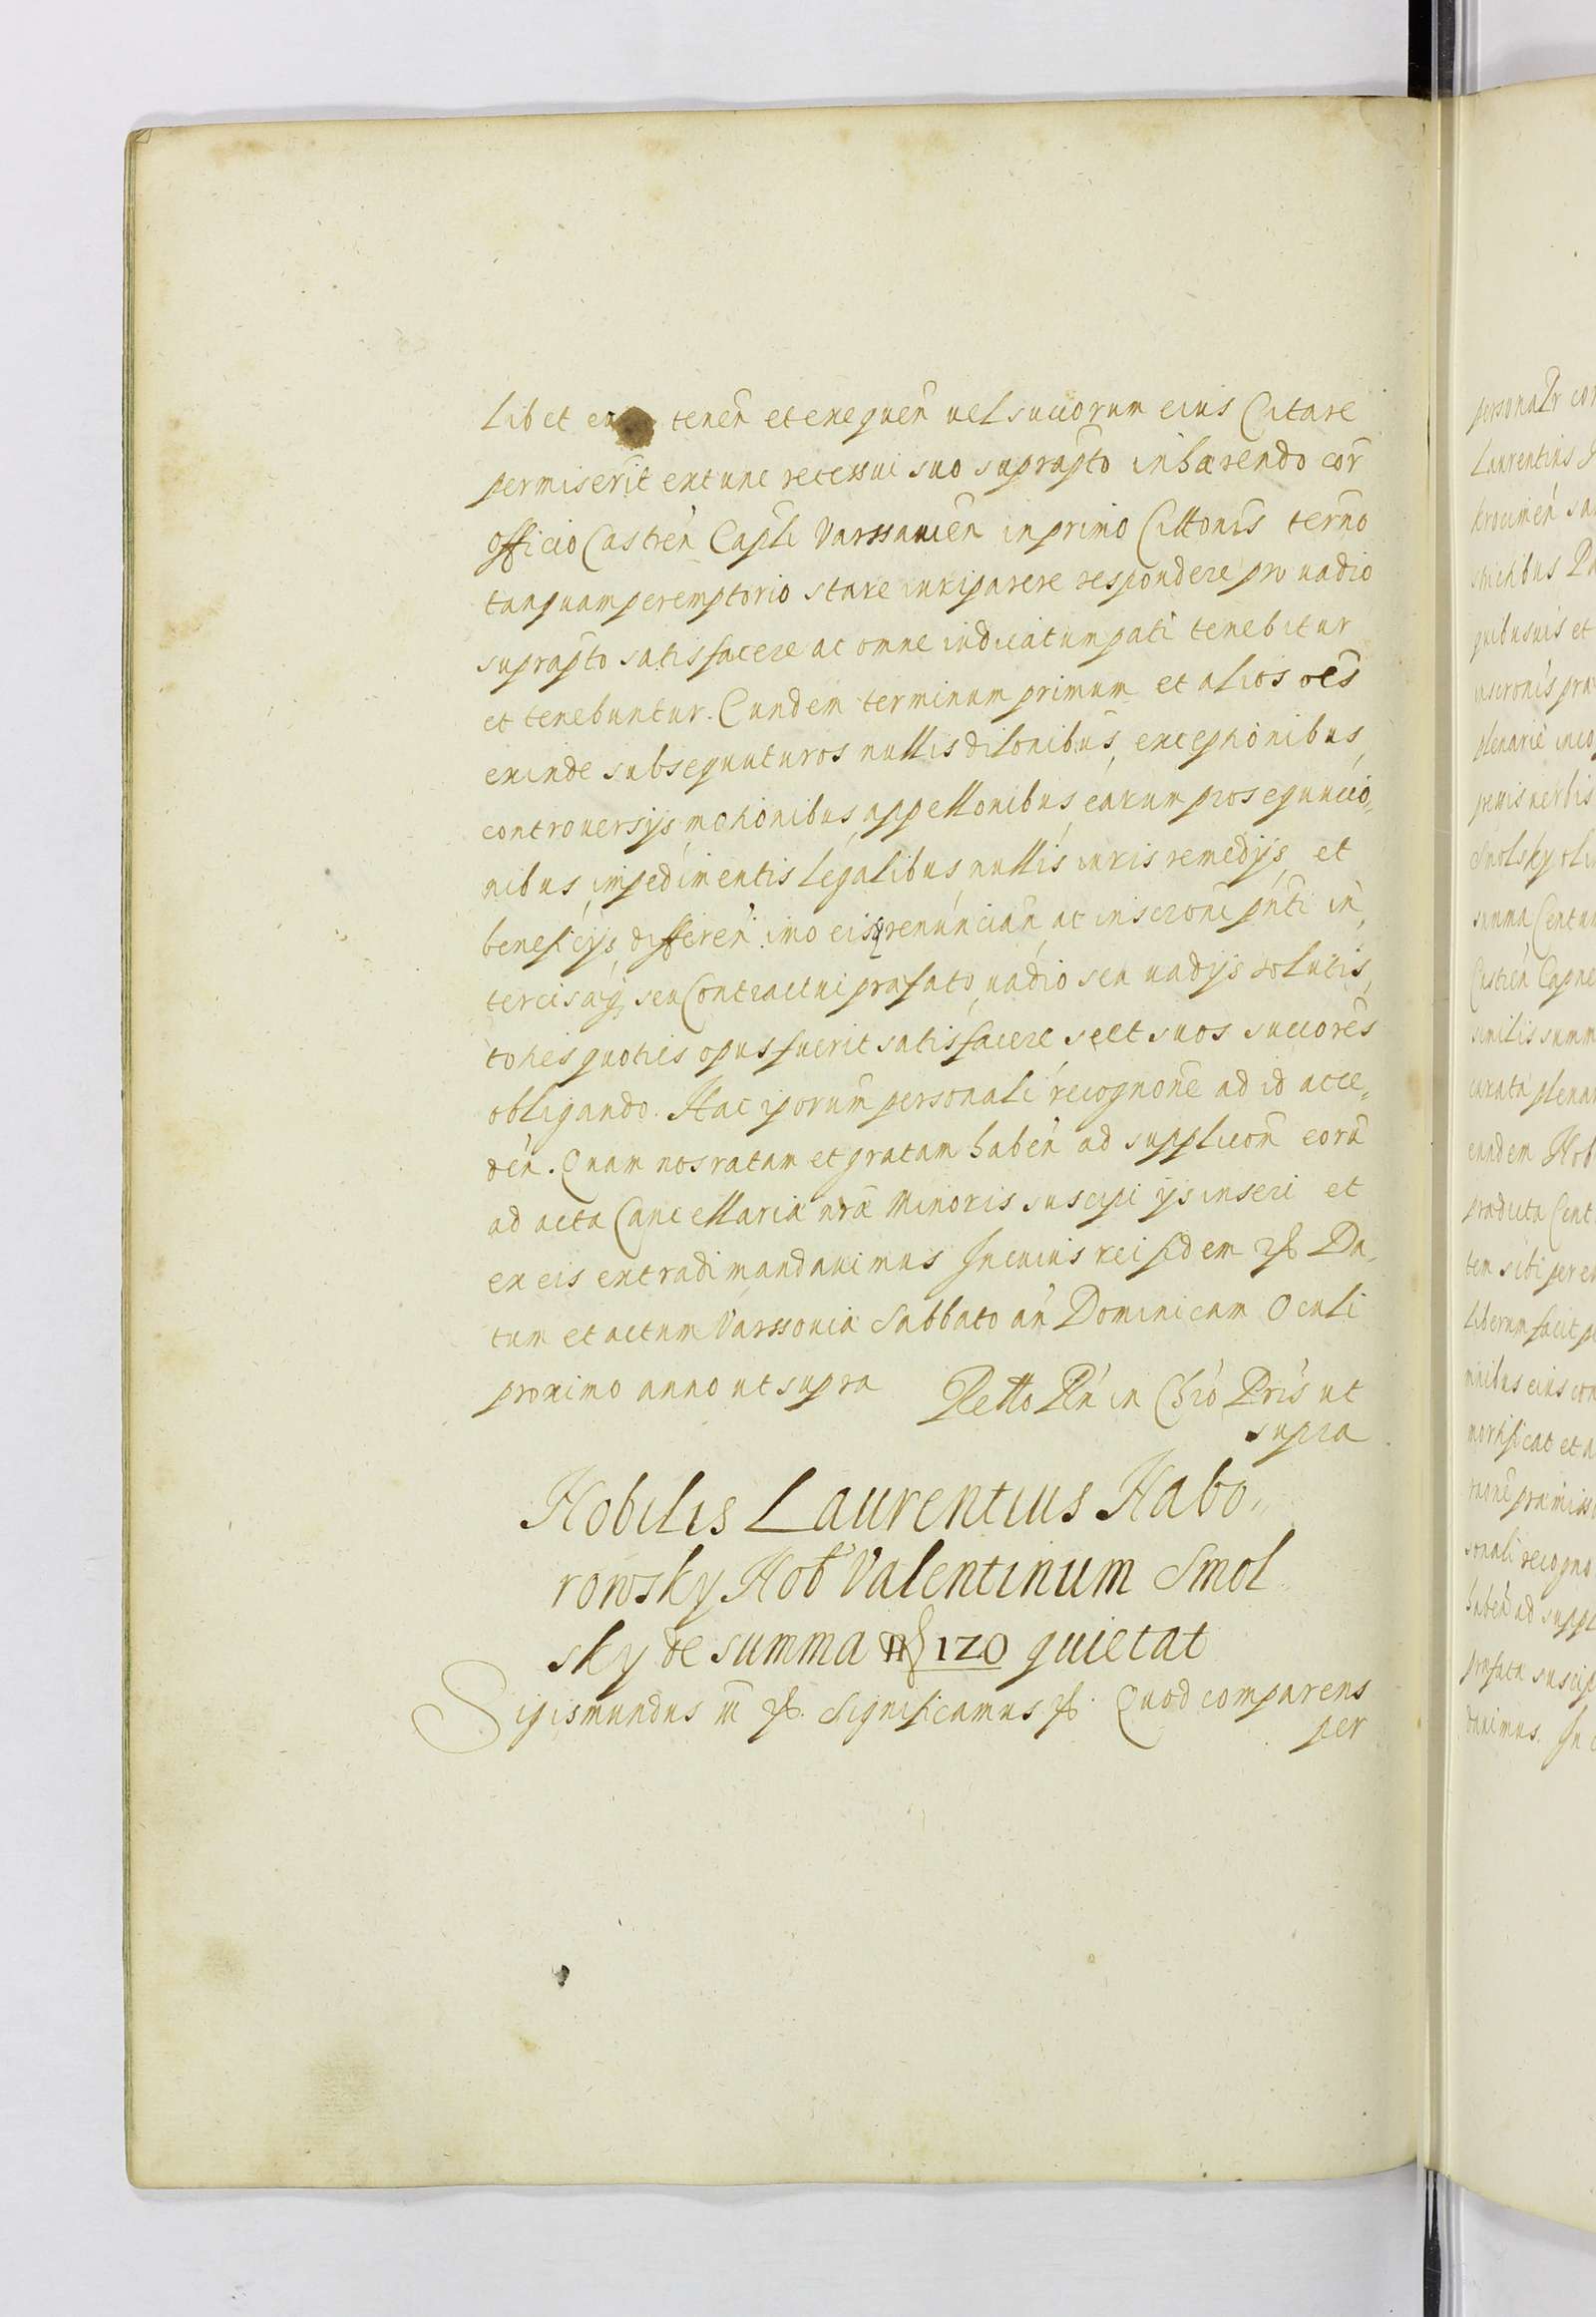 libet en tenen et exequen uel succorum eius Citare
permiserit extunc recessui suo suprapto inhærendo cor
officio Castren Capli Varssauien in primo Cittonis terno
tanquam peremptorio stare iuri parere respondere pro uadio
suprapto satisfacere ac omne iudicatum pati tenebitur
et tenebuntur. Eundem terminum primum et alios oes
exinde subsequuturos nullis dilonibus, exceptionibus,
controuersijs, motionibus, appellonibus, earum prosequucio,,
nibus, impedimentis legalibus, nullis iuris remedijs et
beneficijs, differen imo eisq renuncian, ac inscroni pnti in,,
tercisaq seu Contractui præfato, uadio seu uadijs solutis,
toties quoties opus fuerit satisfacere se et suos succores
obligando. Hac iporum personali recognone ad id acce,,
den. Quam nos ratam et gratam haben ad supplicon eoru
ad acta Cancellariæ nræ Minoris suscipi ijs inseri et
ex eis extradi mandauimus In cuius rei fidem etc Da,,
tum et actum Varssouiæ Sabbato an Dominicam Oculi
proximo anno ut supra Retto Rn in Chro Pris ut
supra
Nobilis Laurentius Nabo,,
rowsky Nob Valentinum Smol
sky de summa fl 120 quietat
Sigismundus III etc. Significamus etc. Quod comparens
per
personalr con
Laurentius
quibusuis et
inscronis præ
plenarie inco
Smolsky oli
summa Centum
Castren Capne
similis summ
curata plenar
eundem Nob
prædicta Cent
tem sibi per eu
liberum facit
mortificat et a
præmiss
sonali recogno
haben ad suppl
præfata suscip
dauimus. In c